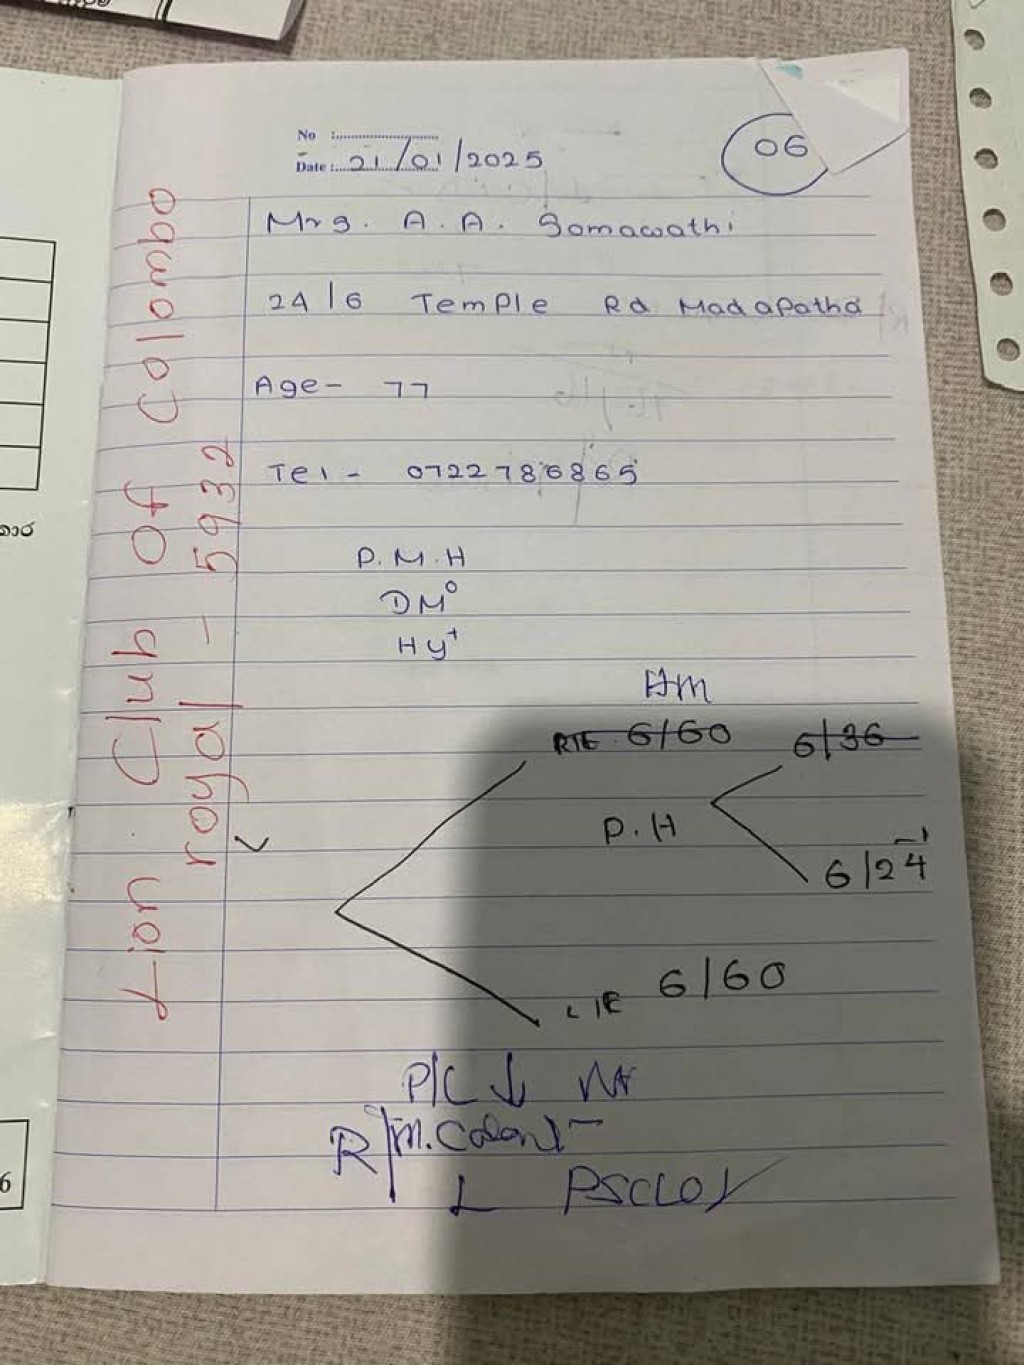 No :
Date : 21/01/2025
06
Mrs. A. A. Somawathi
24/6 Temple Rd Madapatha
Age- 77
Tel - 0722786865
P.M.H
DM⁰
Hy⁺
HM
RTE 6/60
6/36
P.H
6/24⁻¹
LIE 6/60
P/C ↓
R
L PSCLO
Lion Club Of Colombo
royal - 5932
කාර
6